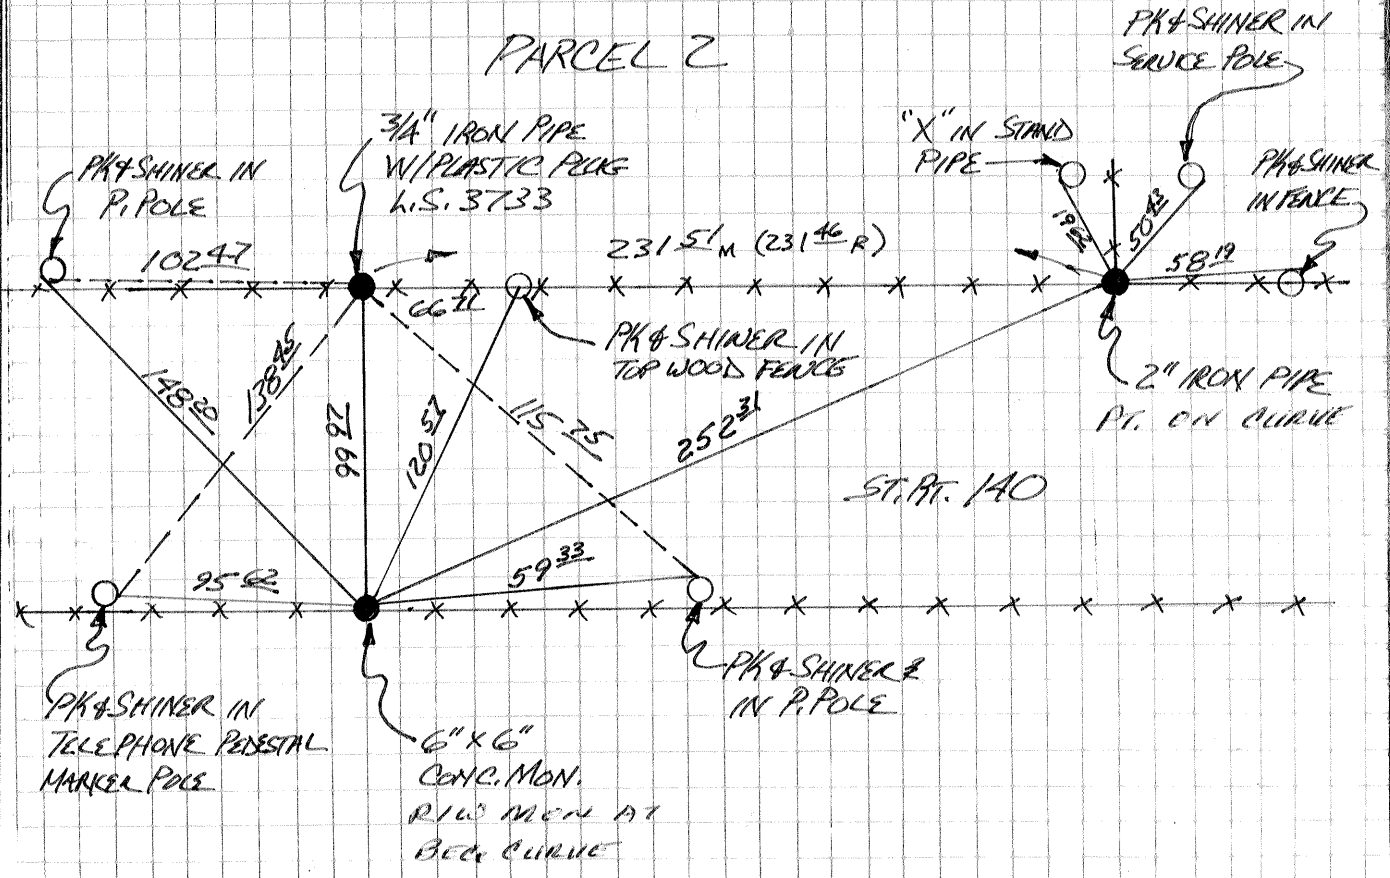 PARCEL 2
PK & SHINER IN
SERVICE POLE
3/4" IRON PIPE
W/PLASTIC PLUG
L.S. 3733
"X" IN STAND
PIPE
PK & SHINER IN
P. POLE
PK & SHINER
IN FENCE
102 47
231 51 M (231 46 R)
19 62
50 43
58 19
66 71
PK & SHINER IN
TOP WOOD FENCE
2" IRON PIPE
PT. ON CURVE
148 20
138 45
99 97
120 57
115 75
252 31
ST. RT. 140
95 62
59 33
PK & SHINER
IN P. POLE
PK & SHINER IN
TELEPHONE PEDESTAL
MARKER POLE
6" X 6"
CONC. MON.
R/W MON AT
BEG. CURVE